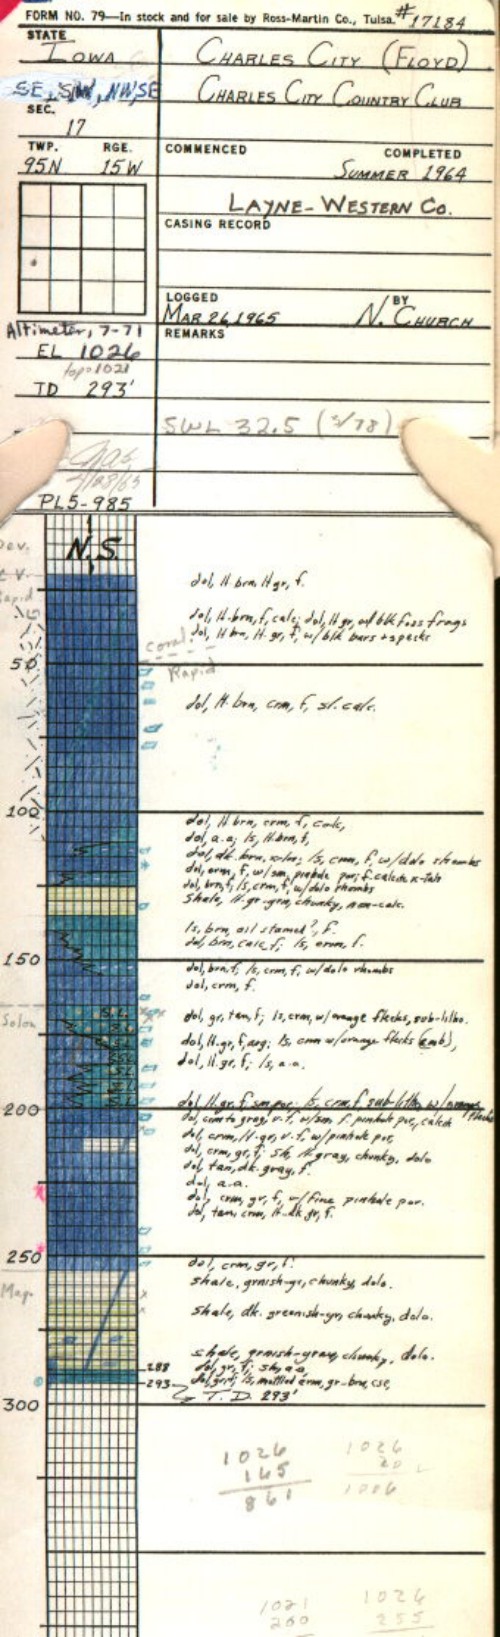 FORM NO. 79—In stock and for sale by Ross-Martin Co., Tulsa. #17184
STATE
IOWA
CHARLES CITY (FLOYD)
SE, SW, NW, SE
CHARLES CITY COUNTRY CLUB
SEC.
17
TWP. RGE. COMMENCED COMPLETED
95N 15W SUMMER 1964
LAYNE-WESTERN CO.
CASING RECORD
LOGGED BY
MAR 26, 1965 N. CHURCH
Altimeter, 7-71
REMARKS
EL 1026
topo 1021
TD 293'
SWL 32.5 (3/78)
PLS-985
Dev.
N.S.
C.V.
Rapid
dol, lt. brn, lt gr, f.
dol, lt. brn, f, calc; dol, lt gr, w/ blk foss frags
dol, lt brn, lt. gr, f, w/ blk bars + specks
Coral.
50
Rapid
dol, lt. brn, crm, f, sl. calc.
100
dol, lt. brn, crm, f, calc,
dol, a.a; ls, lt. brn, f,
dol, dk. brn, xln; ls, crm, f, w/ dolo rhombs
dol, crm, f, w/ sm, pinhole por; f. calcite x-tals
dol, brn, f; ls, crm, f, w/ dolo rhombs
Shale, lt. gr-grn, chunky, non-calc.
ls, brn, oil stained?, f.
dol, brn, calc, f; ls, crm, f.
150
dol, brn, f; ls, crm, f, w/ dolo rhombs
dol, crm, f.
Solon
dol, gr, tan, f; ls, crm, w/ orange flecks, sub-litho.
dol, lt. gr, f, arg; ls, crm w/ orange flecks (emb),
dol, lt. gr, f; ls, a.a.
dol, lt. gr, f, sm por. ls, crm, f, sub-litho, w/ orange flecks
200
dol, crm to gray, v. f, w/ sm, f. pinhole por, calcite
dol, crm, lt. gr, v. f, w/ pinhole por,
dol, crm, gr, f; sh, lt gray, chunky, dolo
dol, tan, dk. gray, f.
dol, a.a.
dol, crm, gr, f, w/ fine pinhole por.
dol, tan, crm, lt-dk gr, f.
250
dol, crm, gr, f.
Map.
shale, grnish-gr, chunky, dolo.
shale, dk. greenish-gr, chunky, dolo.
shale, grnish-gray, chunky, dolo.
288
dol, gr, f; sh, a.a
293
ls, mottled crm, gr-brn, cse,
T.D. 293'
300
1026 1026
165 20
861 1006
1021 1026
260 255